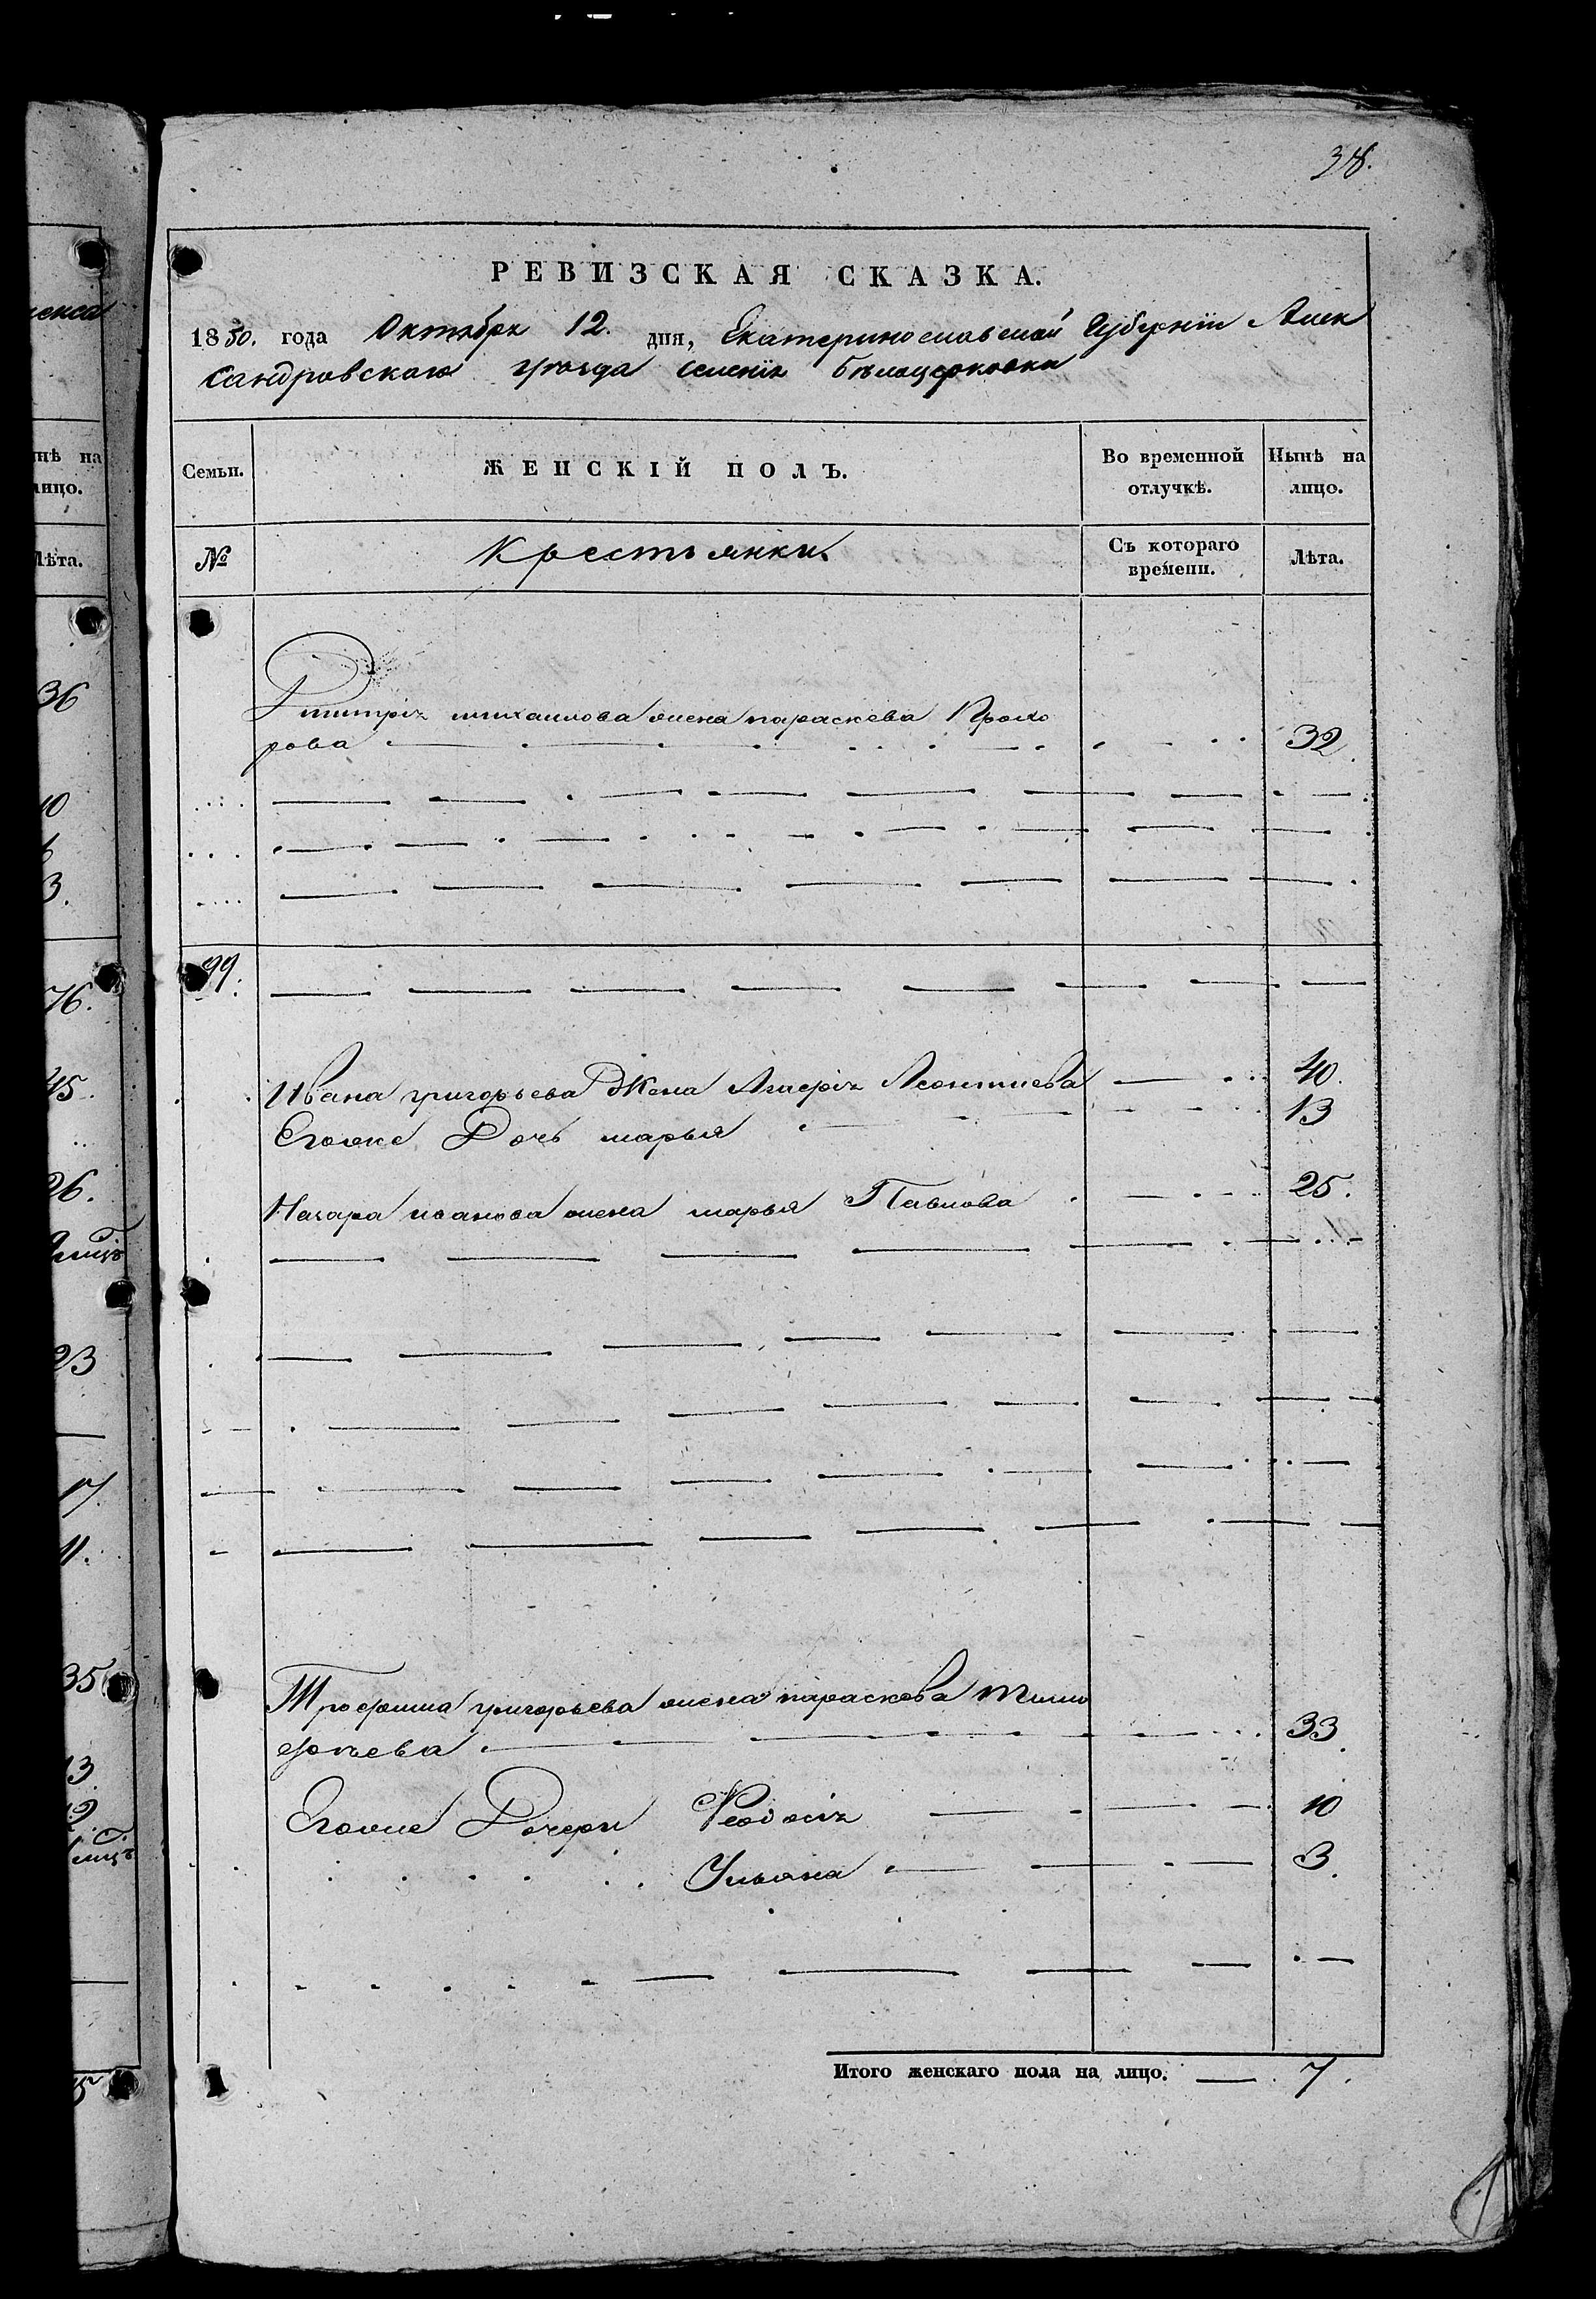 38.
РЕВИЗСКАЯ СКАЗКА.
1850. года Октября 12. дня, Екатеринославской Губернїи Алек
сандровскаго уѣзда селенїя Бѣлоцерковки
Семьи.
ЖЕНСКІЙ ПОЛЪ.
Во временной отлучкѣ.
Нынѣ на лицо.
№
Крестьянки.
Съ котораго времени.
Лѣта.
Дмитрїя михаилова жена параскева Прохо
рова 32.
99.
Ивана григорьева Жена Агаерїя Леонтиева 40.
Егоже Дочь марья 13
Назара иванова жена марья Павлова 25.
Трофима григорьева жена параскева тимо
фѣева 33.
Егоже Дочери Феодосїя 10
Ульяна 3.
Итого женскаго пола на лицо. 7.
нѣ на
лицо.
Лѣта.
36
10
3.
76.
45.
26.
23
17.
11.
35
13.